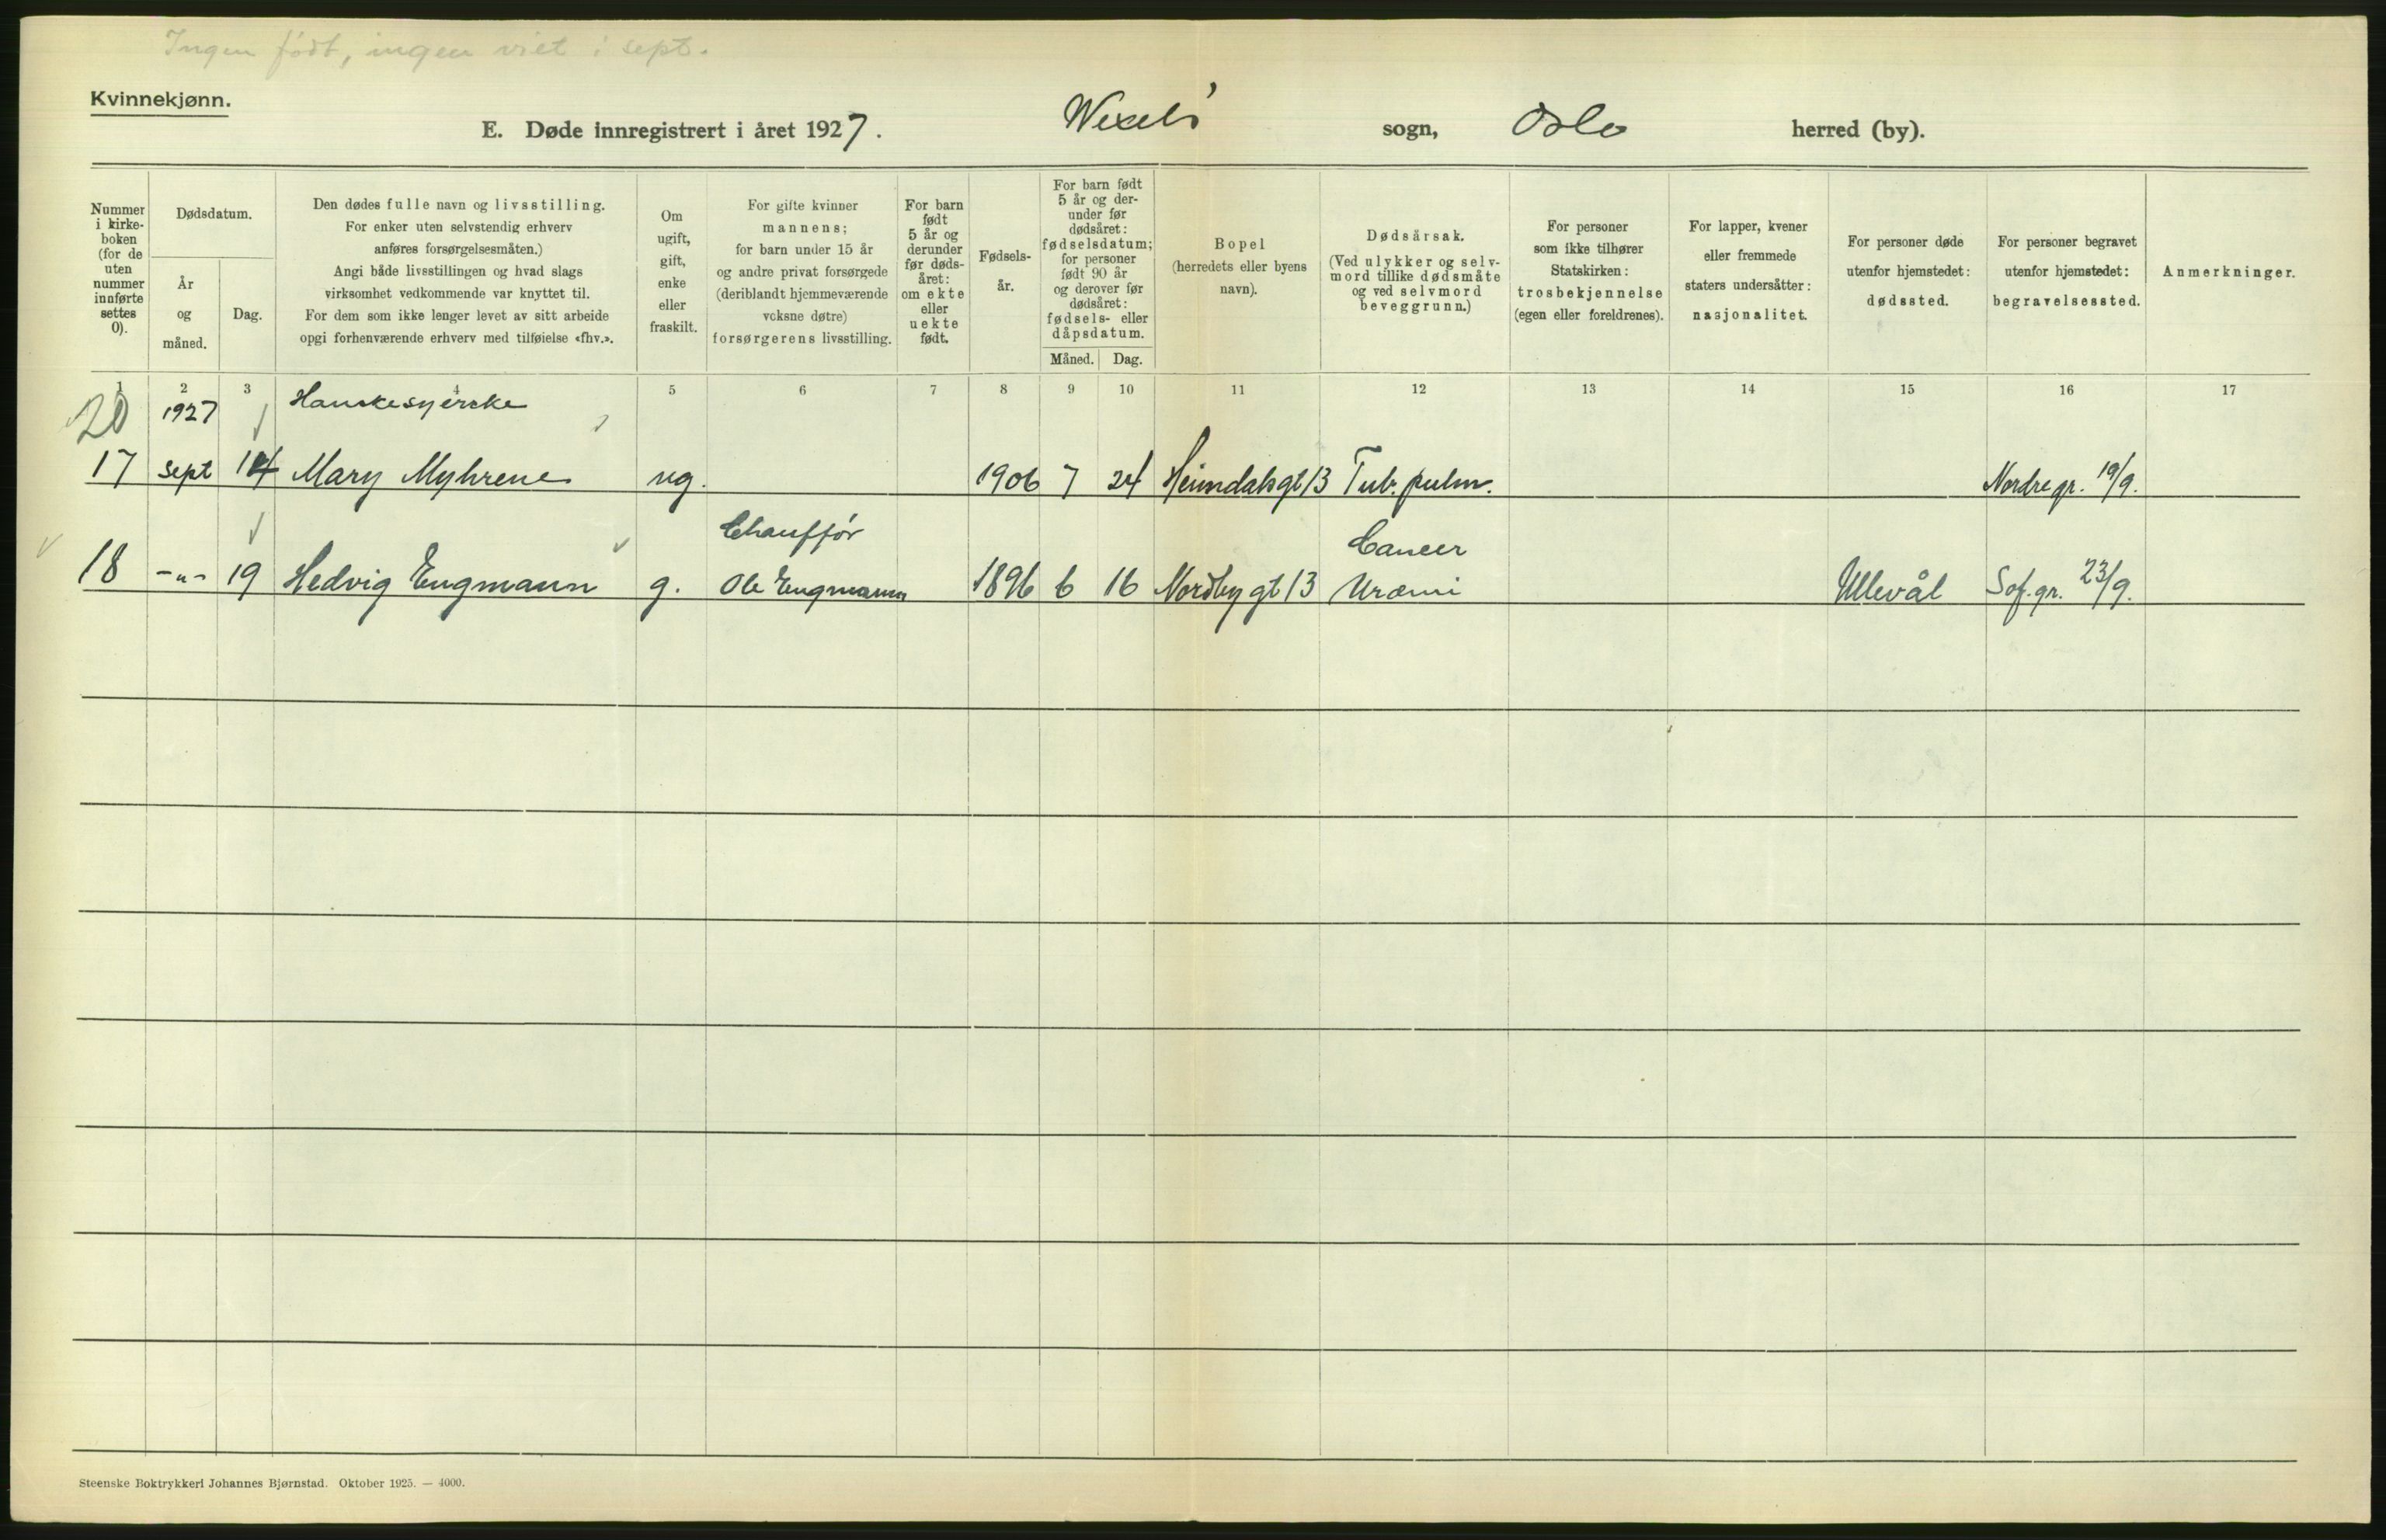 Ingen født, ingen viet i sept.
Kvinnekjønn.
E. Døde innregistrert i året 1927. Wexels' sogn, Oslo herred (by).
Nummer i kirke- boken (for de uten nummer innførte settes 0).
Dødsdatum.
År og måned.
Dag.
Den dødes fulle navn og livsstilling.
For enker uten selvstendig erhverv
anføres forsørgelsesmåten.)
Angi både livsstillingen og hvad slags
virksomhet vedkommende var knyttet til.
For dem som ikke lenger levet av sitt arbeide
opgi forhenværende erhverv med tilføielse «fhv.».
Om ugift, gift, enke eller fraskilt.
For gifte kvinner
mannens;
for barn under 15 år
og andre privat forsørgede
(deriblandt hjemmeværende
voksne døtre)
forsørgerens livsstilling.
For barn født 5 år og derunder før døds- året: om ekte eller uekte født.
Fødsels- år.
For barn født
5 år og der-
under før
dødsåret:
fødselsdatum;
for personer
født 90 år
og derover før
dødsåret:
fødsels- eller
dåpsdatum.
Måned. Dag.
Bopel
(herredets eller byens
navn).
Dødsårsak.
(Ved ulykker og selv-
mord tillike dødsmåte
og ved selvmord
beveggrunn.)
For personer
som ikke tilhører
Statskirken:
trosbekjennelse
(egen eller foreldrenes).
For lapper, kvener
eller fremmede
staters undersåtter:
nasjonalitet.
For personer døde
utenfor hjemstedet:
dødssted.
For personer begravet
utenfor hjemstedet:
begravelsessted.
Anmerkninger.
1 2 3 4 5 6 7 8 9 10 11 12 13 14 15 16 17
20 1927 Hanskesyerske
17 sept 14 Mary Myhrene ug. 1906 7 24 Heimdalsgt 13 Tub. pulm. Nordre gr. 19/9.
Chauffør Cancer
18 -"- 19 Hedvig Engmann g. Ole Engmann 1896 6 16 Nordbygt 13 Uræmi Ullevål Sof. gr. 23/9.
Steenske Boktrykkeri Johannes Bjørnstad. Oktober 1925. — 4000.